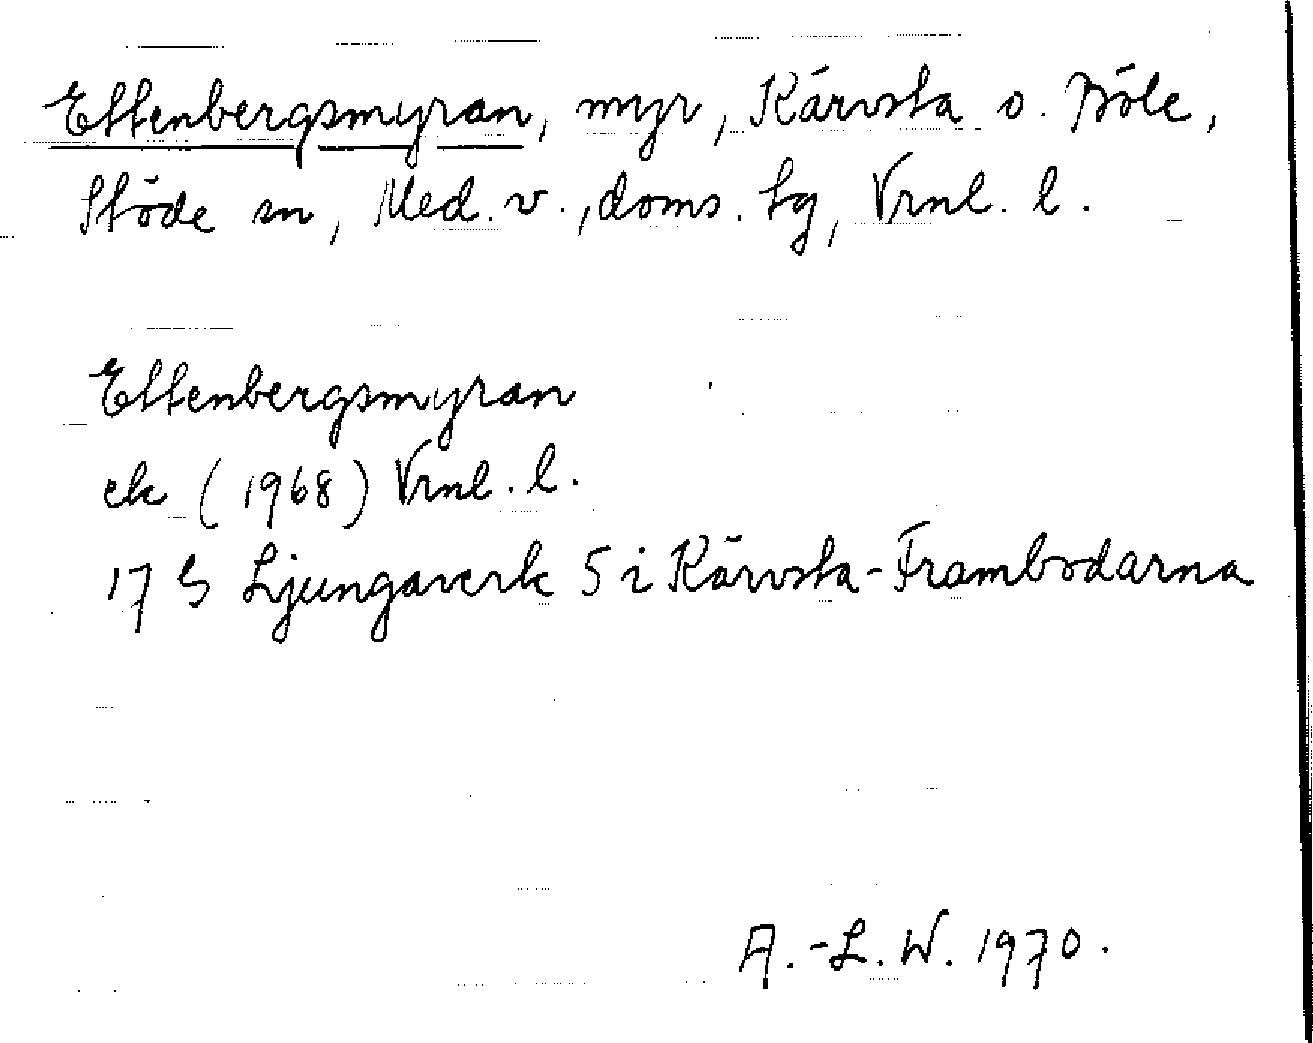 Ettenbergsmyran, myr, Kärvsta o. Böle,
Stöde sn, Med. v., doms. lg, Vrnl. l.
Ettenbergsmyran
ek (1968) Vrnl. l.
17 G Ljungaverk 5 i Kärvsta-Frambodarna
A.-L. W. 1970.